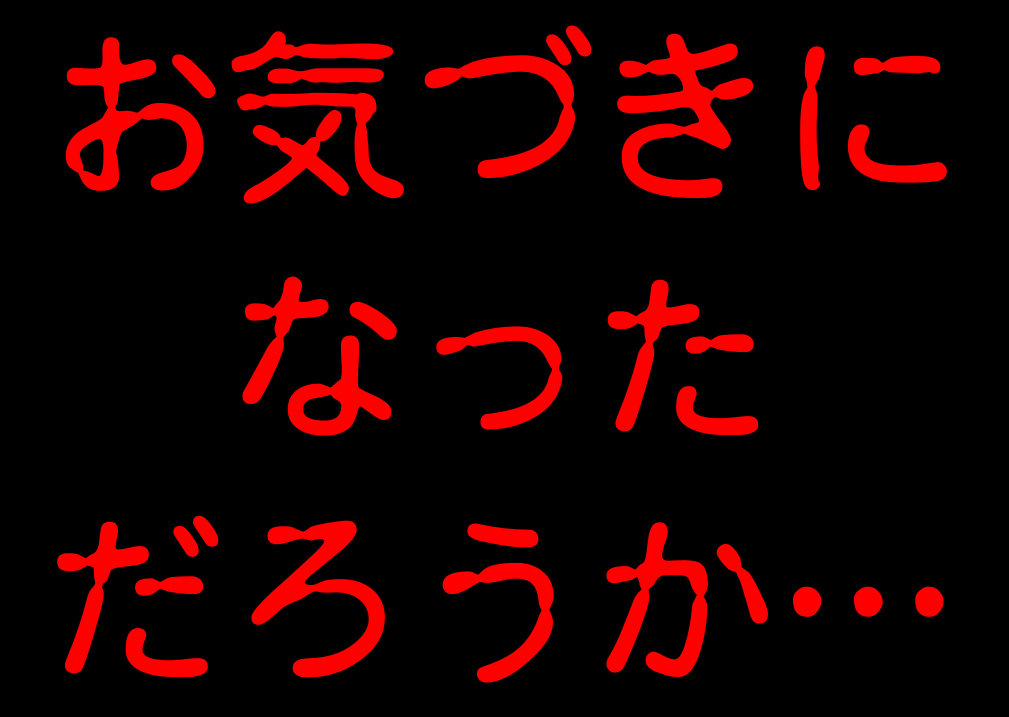 お気づきに
なった
だろうか…